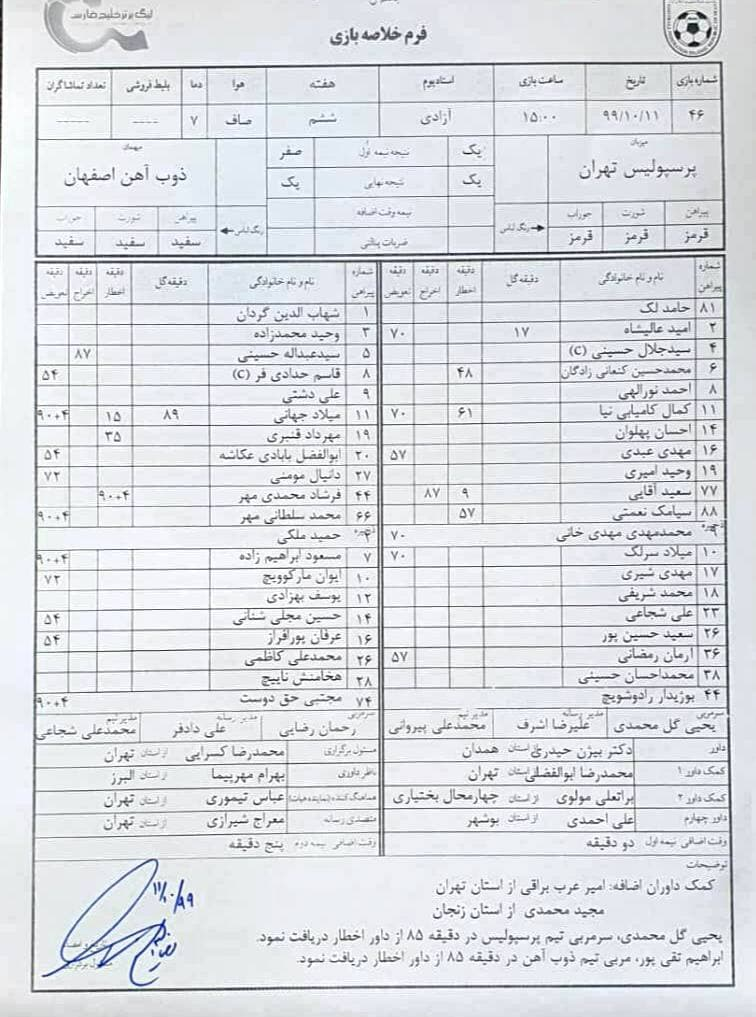 لیگ برتر خلیج فارس
فرم خلاصه بازی
شماره بازی تاریخ ساعت بازی استادیوم هفته هوا دما بلیط فروشی تعداد تماشاگران
۴۶ ۹۹/۱۰/۱۱ ۱۵:۰۰ آزادی ششم صاف ۷ ---- -----
میزبان یک نتیجه نیمه اول صفر میهمان
پرسپولیس تهران یک نتیجه نهایی یک ذوب آهن اصفهان
نیمه وقت اضافه
پیراهن شورت جوراب رنگ لباس ضربات پنالتی رنگ لباس پیراهن شورت جوراب
قرمز قرمز قرمز سفید سفید سفید
شماره پیراهن نام و نام خانوادگی دقیقه گل دقیقه اخطار دقیقه اخراج دقیقه تعویض شماره پیراهن نام و نام خانوادگی دقیقه گل دقیقه اخطار دقیقه اخراج دقیقه تعویض
۸۱ حامد لک ۱ شهاب الدین گردان
۲ امید عالیشاه ۱۷ ۷۰ ۳ وحید محمدزاده
۴ سیدجلال حسینی (C) ۵ سیدعبداله حسینی ۸۷
۶ محمدحسین کنعانی زادگان ۴۸ ۸ قاسم حدادی فر (C) ۵۴
۸ احمد نورالهی ۹ علی دشتی
۱۱ کمال کامیابی نیا ۶۱ ۷۰ ۱۱ میلاد جهانی ۸۹ ۱۵ ۹۰+۴
۱۴ احسان پهلوان ۱۹ مهرداد قنبری ۳۵
۱۶ مهدی عبدی ۵۷ ۲۰ ابوالفضل بابادی عکاشه ۵۴
۱۹ وحید امیری ۲۷ دانیال مومنی ۷۲
۷۷ سعید آقایی ۹ ۸۷ ۴۴ فرشاد محمدی مهر ۹۰+۴
۸۸ سیامک نعمتی ۵۷ ۶۶ محمد سلطانی مهر ۹۰+۴
ذخیره ۹ محمدمهدی مهدی خانی ۷۰ ذخیره ۲ حمید ملکی
۱۰ میلاد سرلک ۷۰ ۷ مسعود ابراهیم زاده ۹۰+۴
۱۷ مهدی شیری ۱۰ ایوان مارکوویچ ۷۲
۱۸ محمد شریفی ۱۲ یوسف بهزادی
۲۳ علی شجاعی ۱۴ حسین مجلی شنانی ۵۴
۲۶ سعید حسین پور ۱۶ عرفان پورافراز ۵۴
۳۶ آرمان رمضانی ۵۷ ۲۶ محمدعلی کاظمی
۳۸ محمداحسان حسینی ۲۸ هخامنش ناییج
۴۴ بوژیدار رادوشویچ ۷۴ مجتبی حق دوست ۹۰+۴
سرمربی یحیی گل محمدی مدیر رسانه علیرضا اشرف مدیر تیم محمدعلی پیروانی سرمربی رحمان رضایی مدیر رسانه علی دادفر مدیر تیم محمدعلی شجاعی
داور دکتر بیژن حیدری از استان همدان مسئول برگزاری محمدرضا کسرایی از استان تهران
کمک داور ۱ محمدرضا ابوالفضلی از استان تهران ناظر داوری بهرام مهرپیما از استان البرز
کمک داور ۲ براتعلی مولوی از استان چهارمحال بختیاری هماهنگ کننده (نماینده هیات) عباس تیموری از استان تهران
داور چهارم علی احمدی از استان بوشهر متصدی رسانه معراج شیرازی از استان تهران
وقت اضافی نیمه اول دو دقیقه وقت اضافی نیمه دوم پنج دقیقه
توضیحات
کمک داوران اضافه: امیر عرب براقی از استان تهران
مجید محمدی از استان زنجان
یحیی گل محمدی، سرمربی تیم پرسپولیس در دقیقه ۸۵ از داور اخطار دریافت نمود.
ابراهیم تقی پور، مربی تیم ذوب آهن در دقیقه ۸۵ از داور اخطار دریافت نمود.
۱۱/۱۰/۹۹